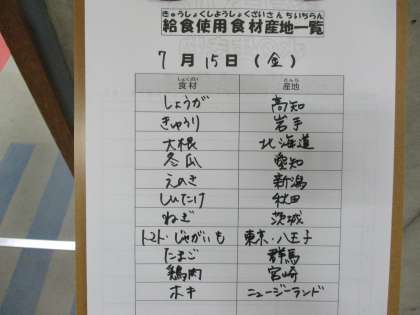 きゅうしょくしようしょくざいさんちいちらん
給食使用食材産地一覧
7月15日(金)
しょくざい さんち
食材 産地
しょうが 高知
きゅうり 岩手
大根 北海道
冬瓜 愛知
えのき 新潟
しいたけ 秋田
ねぎ 茨城
トマト・じゃがいも 東京・八王子
たまご 群馬
鶏肉 宮崎
ホキ ニュージーランド